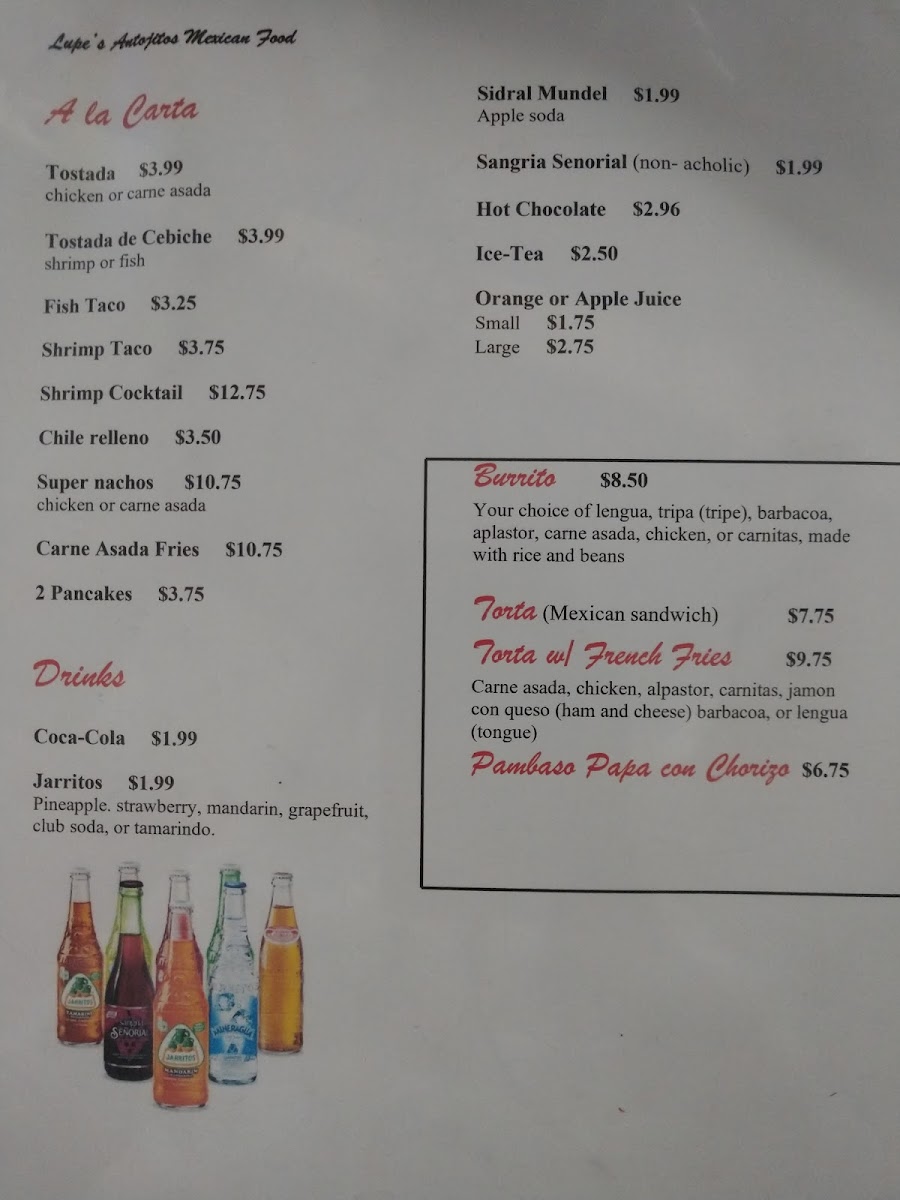 Lupe's Antojitos Mexican Food
A la Carta
Tostada $3.99
chicken or carne asada
Tostada de Cebiche $3.99
shrimp or fish
Fish Taco $3.25
Shrimp Taco $3.75
Shrimp Cocktail $12.75
Chile relleno $3.50
Super nachos $10.75
chicken or carne asada
Carne Asada Fries $10.75
2 Pancakes $3.75
Drinks
Coca-Cola $1.99
Jarritos $1.99
Pineapple. strawberry, mandarin, grapefruit,
club soda, or tamarindo.
JARRITOS
TAMARIND
SEÑORIAL
JARRITOS
MANDARIN
MINERAGUA
Sidral Mundel $1.99
Apple soda
Sangria Senorial (non- acholic) $1.99
Hot Chocolate $2.96
Ice-Tea $2.50
Orange or Apple Juice
Small $1.75
Large $2.75
Burrito $8.50
Your choice of lengua, tripa (tripe), barbacoa,
aplastor, carne asada, chicken, or carnitas, made
with rice and beans
Torta (Mexican sandwich) $7.75
Torta w/ French Fries $9.75
Carne asada, chicken, alpastor, carnitas, jamon
con queso (ham and cheese) barbacoa, or lengua
(tongue)
Pambaso Papa con Chorizo $6.75